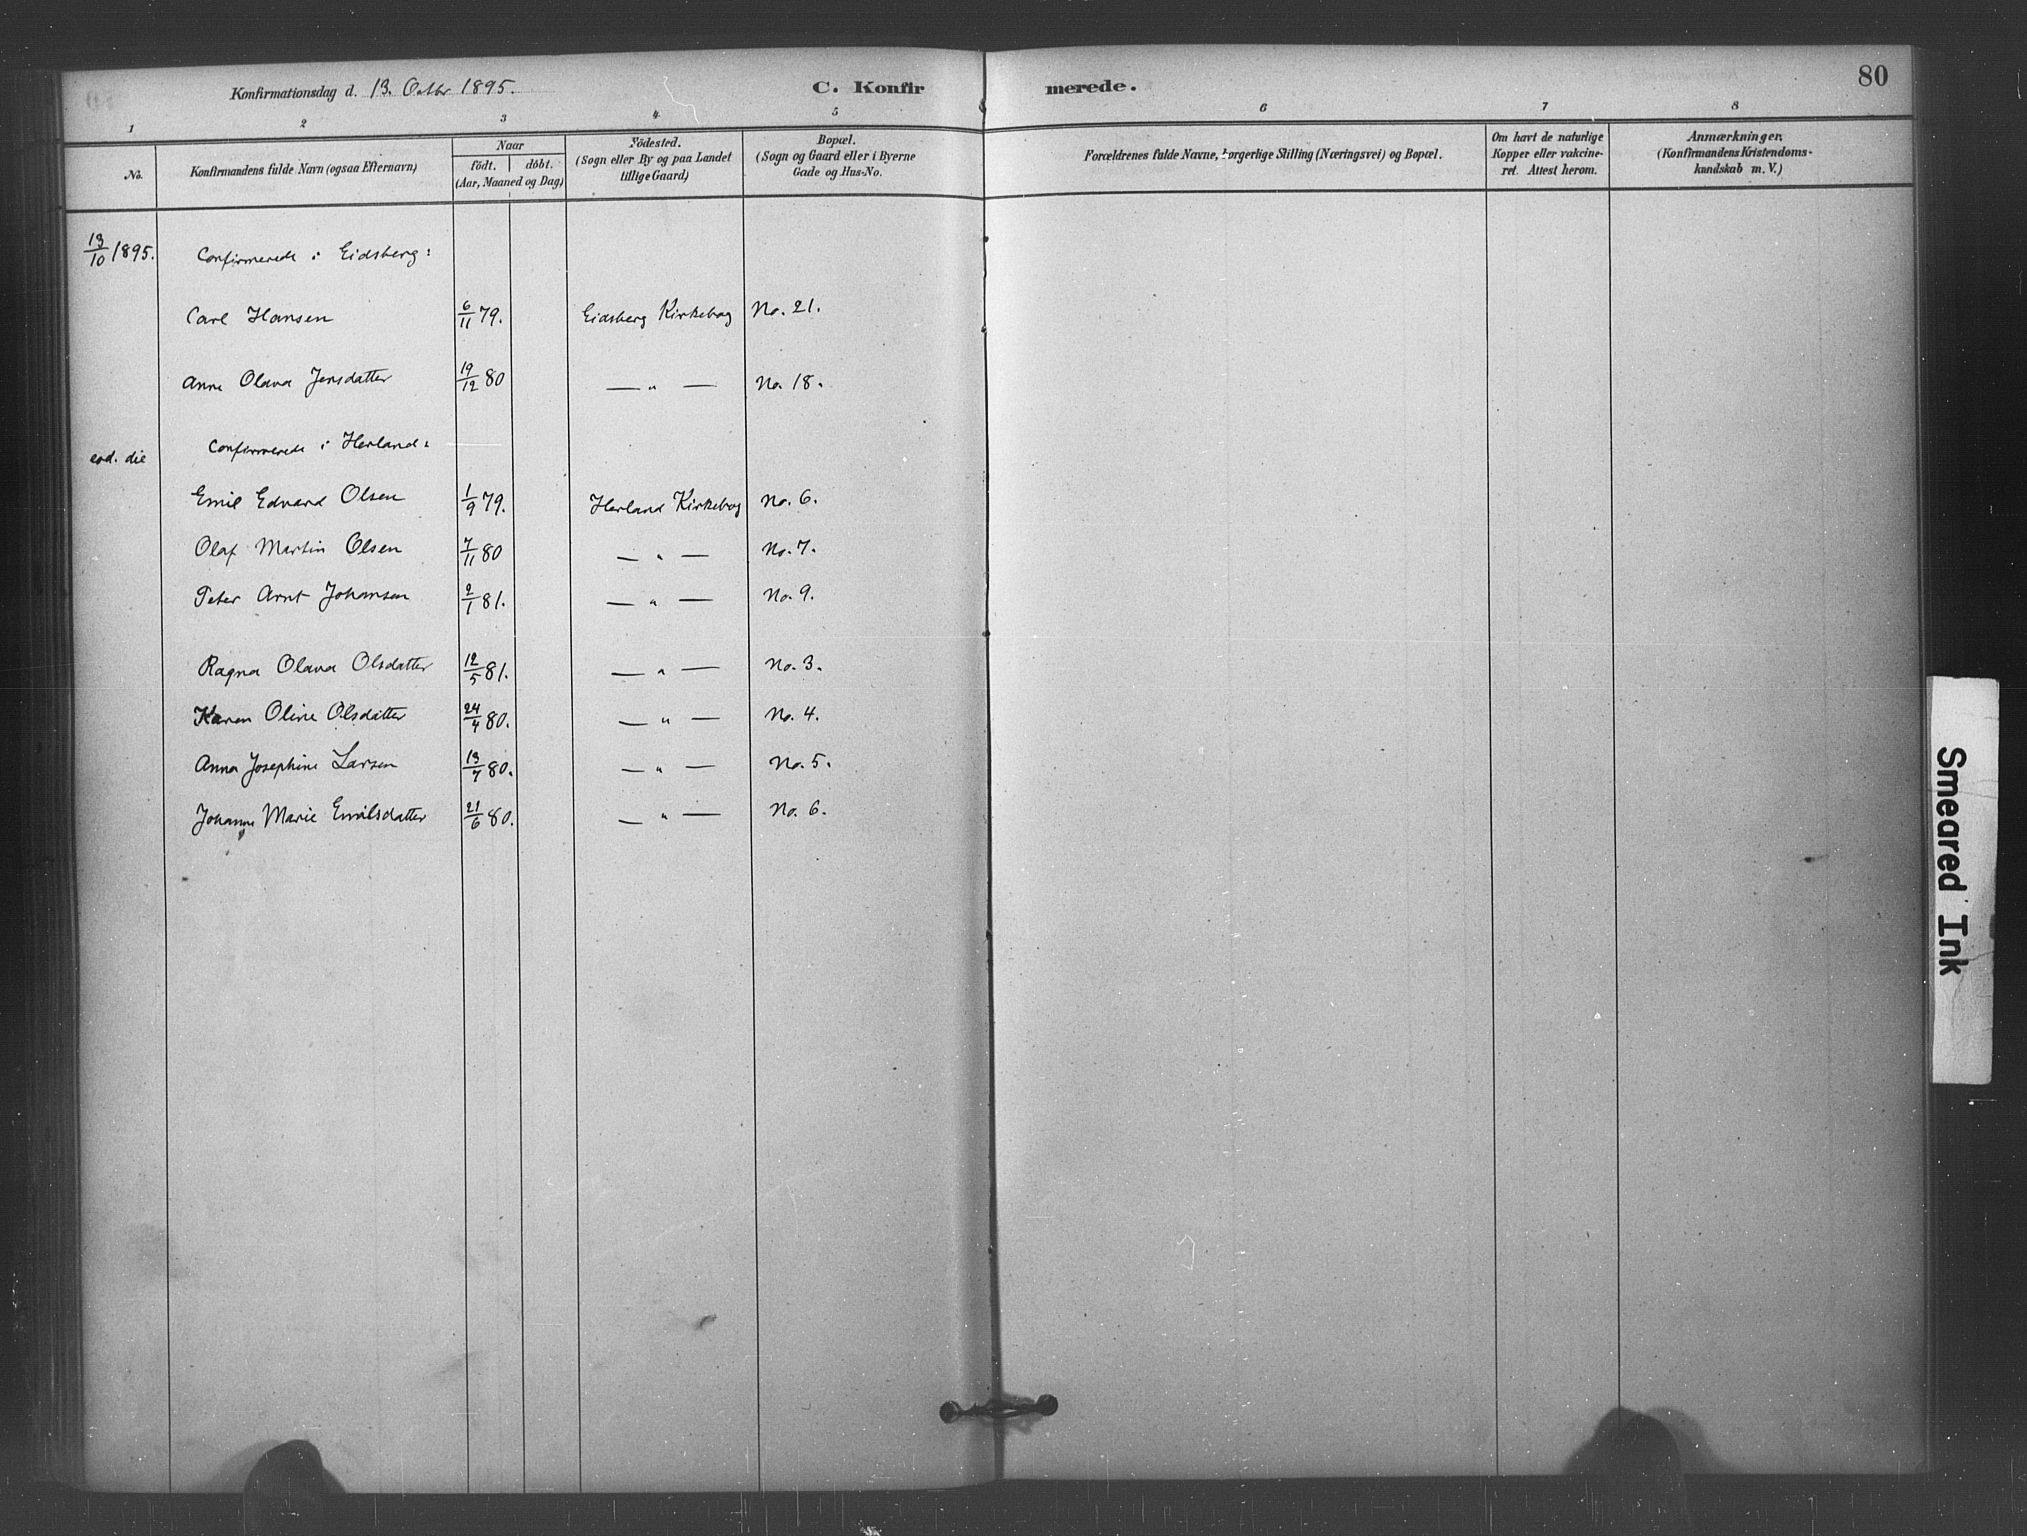 Konfirmationsdag d. 13. Octbr 1895.
C. Konfirmerede.
80
1 2 3 4 5 6 7 8
No.
Konfirmandens fulde Navn (ogsaa Efternavn)
Naar
födt. döbt.
(Aar, Maaned og Dag)
Födested.
(Sogn eller By og paa Landet
tillige Gaard)
Bopæl.
(Sogn og Gaard eller i Byerne
Gade og Hus-No.
Forældrenes fulde Navne, borgerlige Stilling (Næringsvei) og Bopæl.
Om havt de naturlige
Kopper eller vakcine-
ret. Attest herom.
Anmærkninger.
(Konfirmandens Kristendoms-
kundskab m. V.)
13/10 1895. Confirmerede i Eidsberg:
Carl Hansen 6/11 79. Eidsberg Kirkebog No. 21.
Anne Olava Jensdatter 19/12 80 — " — No. 18.
eod. die Confirmerede i Herland:
Emil Edvard Olsen 1/9 79. Herland Kirkebog No. 6.
Olaf Martin Olsen 7/11 80 — " — No. 7.
Peter Arnt Johansen 2/1 81. — " — No. 9.
Ragna Olava Olsdatter 12/5 81. — " — No. 3.
Karen Oline Olsdatter 24/4 80. — " — No. 4.
Anna Josephine Larsen 13/7 80. — " — No. 5.
Johanne Marie Emilsdatter 21/6 80. — " — No. 6.
Smeared Ink